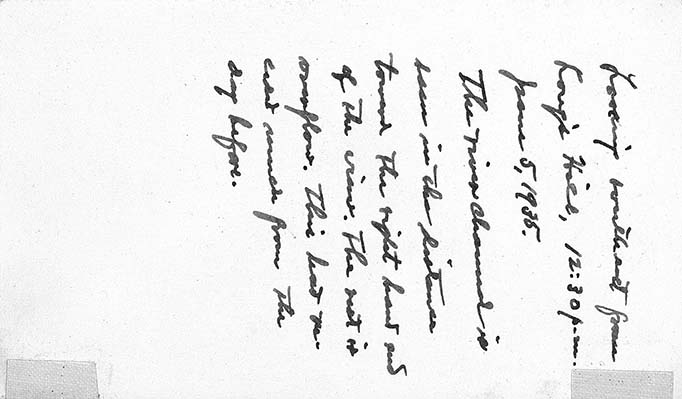 Looking southeast from
Hill, 12:30 p.m.
June 5, 1935.
The river channel is
seen in the distance
toward the right hand end
of the view. The rest is
overflow. This had re-
ceded much from the
day before.